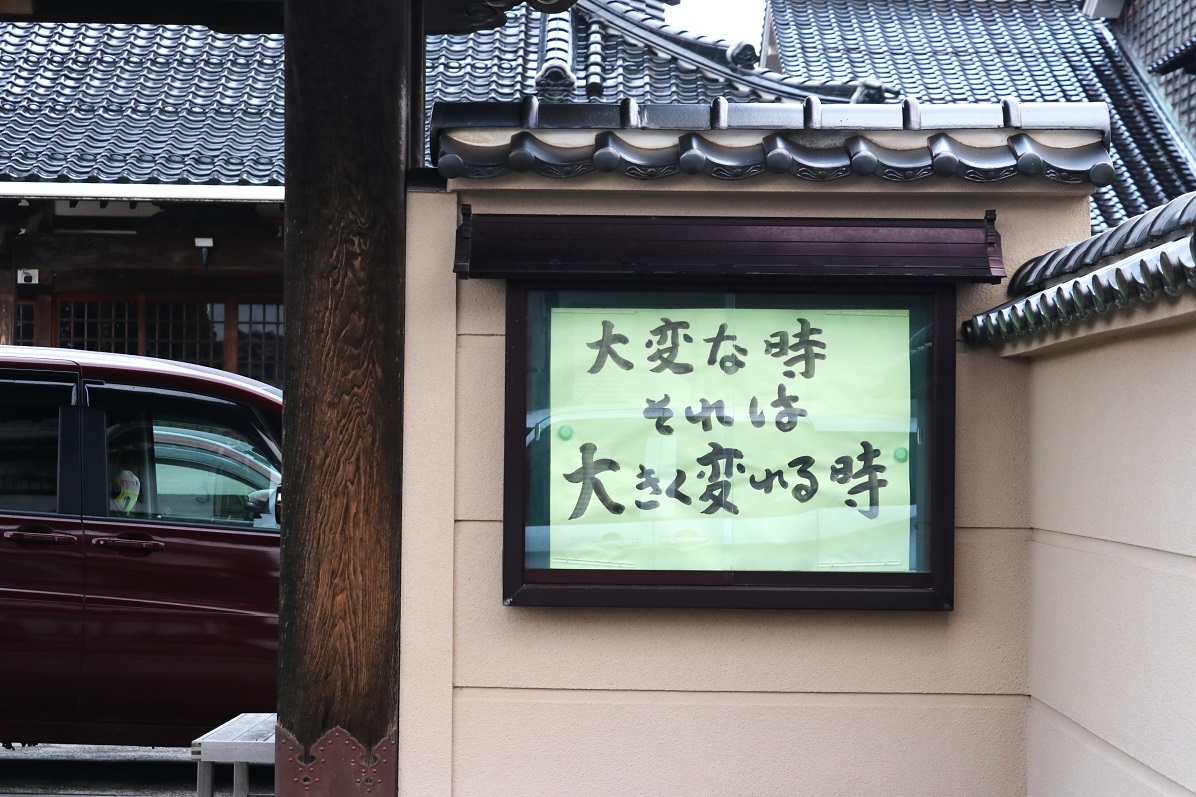 大変な時
それは
大きく変れる時